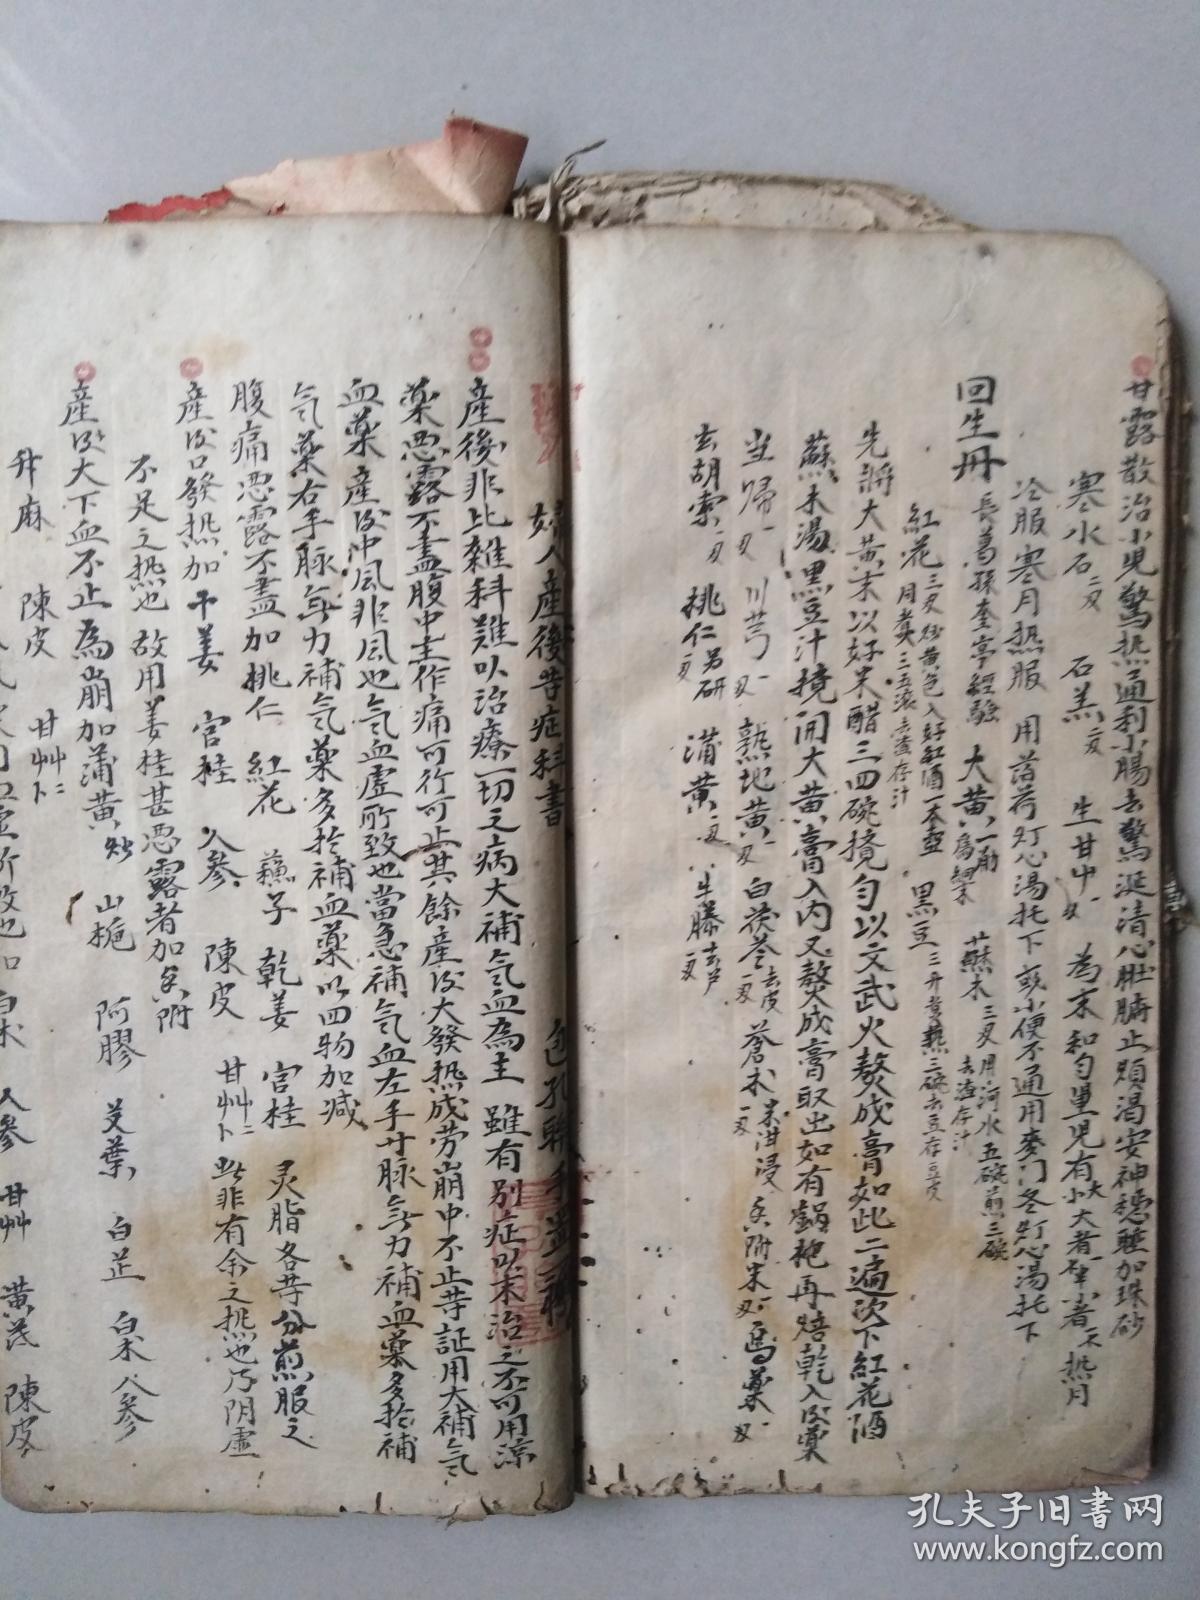 甘露散治小児驚热通利小腸去驚涎清心肚臍止煩渴安神穩睡加珠砂
寒水石 二刄 石羔 二刄 生甘艸 一刄 為末和勻量児有大小大者一𠦂小者不热月
冷服寒月热服 用苭荷灯心湯托下或小便不通用麥门冬灯心湯托下
回生丹 長葛孫奎亭經驗 大黄 一觔為細末 蘇木 三刄用河水五碗煎三碗去渣存汁
紅花 三刄炒黄色入好紅酒一本壺同煮三五滚去渣存汁 黑豆 三升煮熟三碗去豆存豆皮
先將大黄末以好米醋三四碗攪勻以文武火熬成膏如此二遍次下紅花酒
蘇木湯黑豆汁攪開大黄膏入内又熬成膏取出如有鍋𥹷再焙乾入後藥
当歸 一刄 川芎 一刄 熟地黄 一刄 白茯苓 去皮一刄 蒼朮 米泔浸一刄 香附末 一刄 烏藥 一刄
玄胡索 一刄 桃仁 另研一刄 蒲黄 一刄 牛膝 去芦一刄
婦人産後等症科書 包孔聯
産後非比雜科難以治療一切之病大補气血為主 雖有别症以末治之不可用涼
藥恶露不盡腹中主作痛可行可止其餘産後大發热成劳崩中不止等証用大補气
血藥 産後中風非風也气血虚所致也當急補气血左手寸脉無力補血藥多於補
气藥右手脉無力補气藥多於補血藥以四物加减
腹痛恶露不盡加桃仁 紅花 蘇子 乾姜 官桂 灵脂各等分煎服之
産後口發热加干姜 官桂 人參 陳皮 甘艸 此非有余之热也乃阴虚
不足之热也 故用姜桂甚恶露者加香附
産後大下血不止為崩加蒲黄炒 山梔 阿膠 艾葉 白芷 白朮 人參
升麻 陳皮 甘艸
白朮 人參 甘艸 黄芪 陳皮
孔夫子旧书网
www.kongfz.com